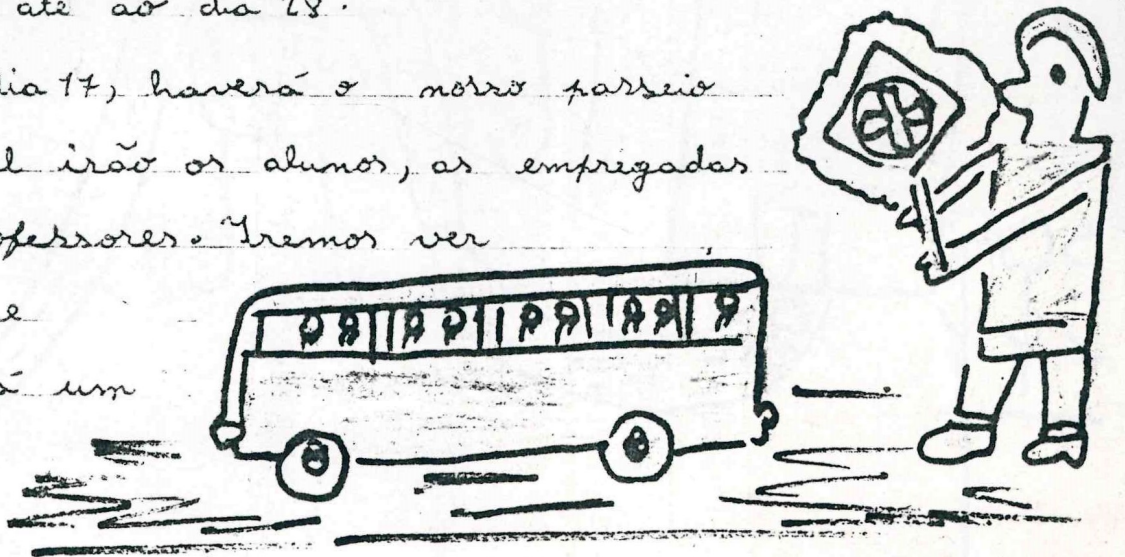 até ao dia 18.
dia 17, haverá o nosso passeio
l irão os alunos, as empregadas
ofessores. Iremos ver
e
á um